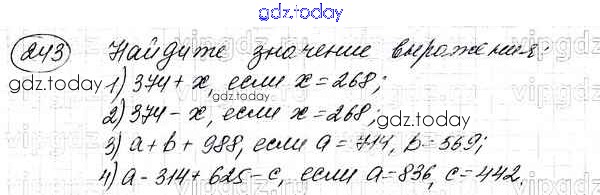 gdz.today
243 Найдите значение выражения:
1) 374 + x, если x = 268;
2) 374 - x, если x = 268;
3) a + b + 988, если a = 714, b = 569;
4) a - 314 + 625 - c, если a = 836, c = 442.
gdz.today
gdz.today